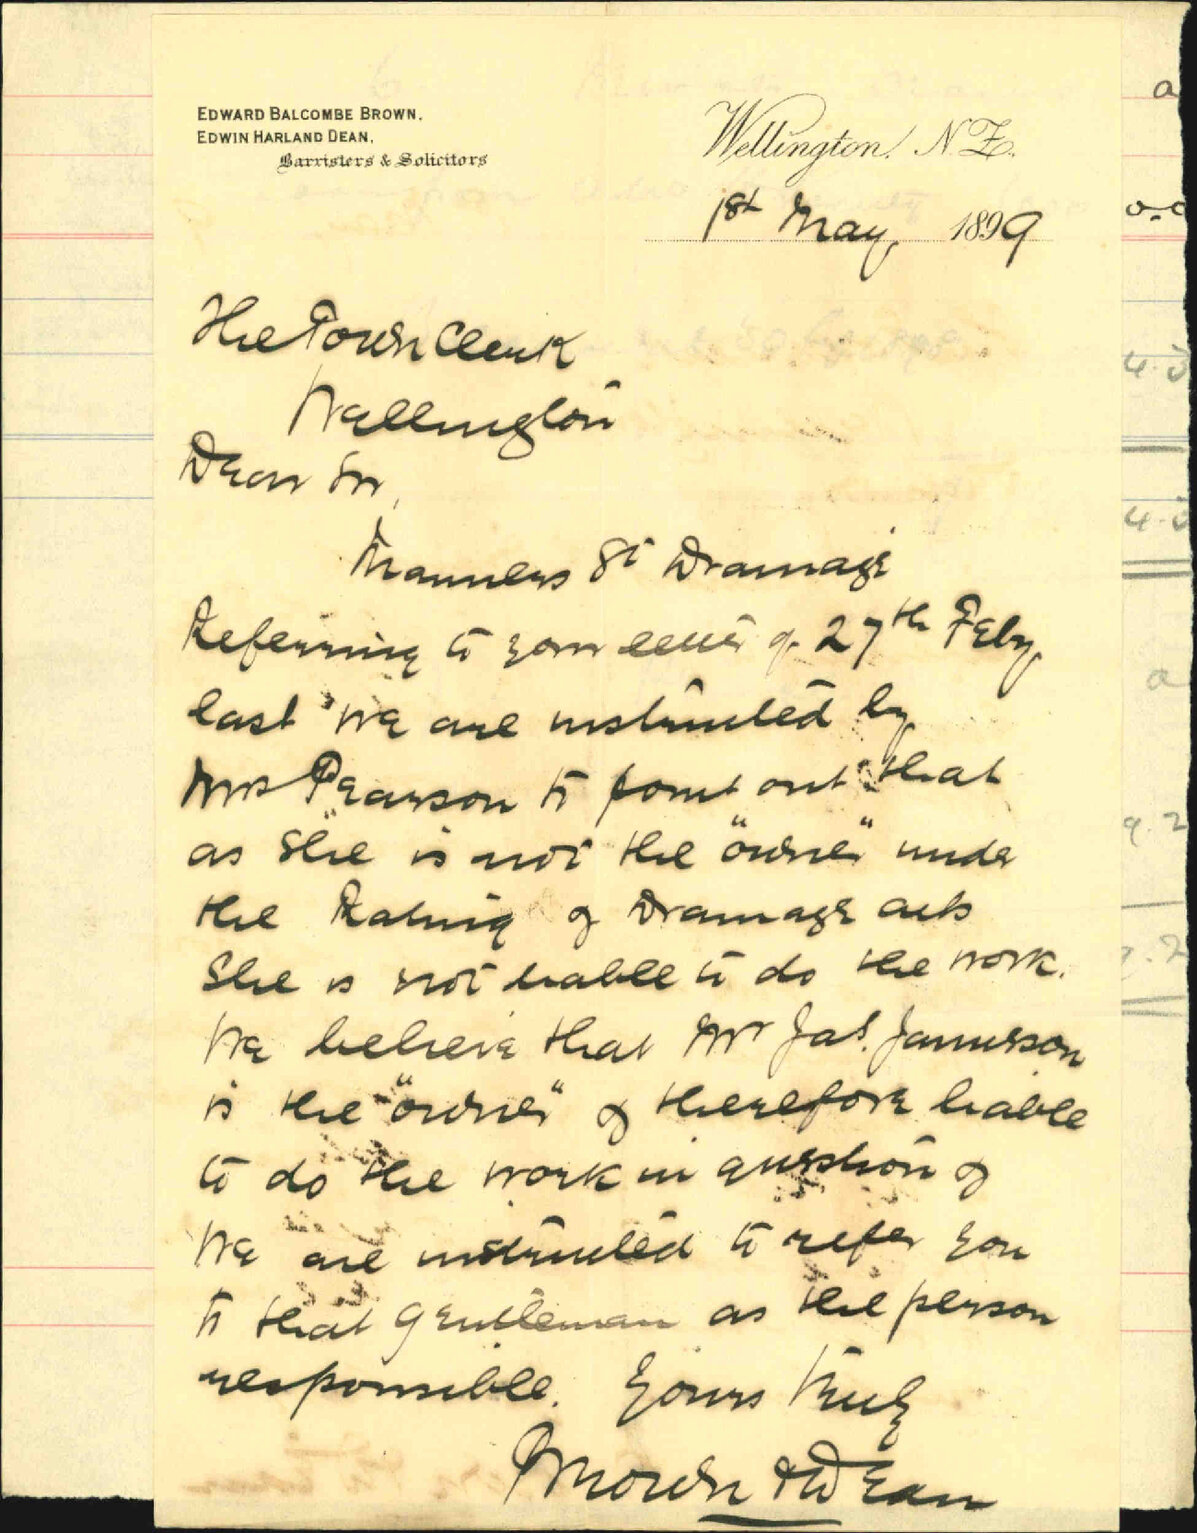 EDWARD BALCOMBE BROWN.
EDWIN HARLAND DEAN.
Barristers & Solicitors
Wellington. N.Z.
1st May, 1899
The Town Clerk
Wellington
Dear Sir,
Manners St Drainage
Referring to your letter of 27th Feby.
last we are instructed by
Mrs Pearson to point out that
as she is not the "owner" under
the Rating & Drainage acts
She is not liable to do the work.
We believe that Mr Jas. Jamieson
is the "owner" & therefore liable
to do the work in question &
We are instructed to refer you
to that gentleman as the person
responsible. Yours truly
Brown & Dean